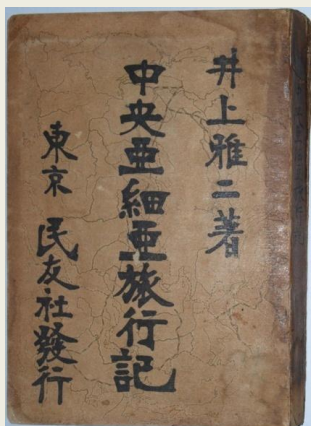 井上雅二著
中央亜細亜旅行記
東京 民友社發行